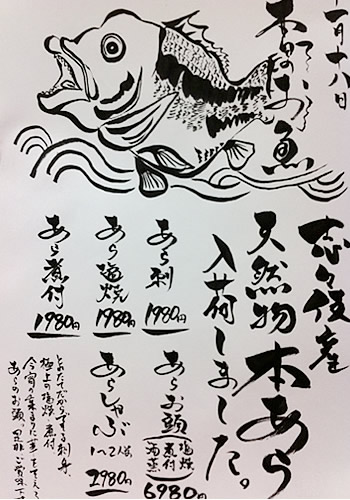 十一月十八日
本日のお魚
志々伎産
天然物 本あら
入荷しました。
あら刺
1980円
あら塩焼
1980円
あら煮付
1980円
あらお頭
塩焼
煮付
酒蒸
6980円
あらしゃぶ
1〜2人前
2980円
とれたてだからできる刺身、
極上の塩焼、煮付
あらのお頭、是非ご賞味下